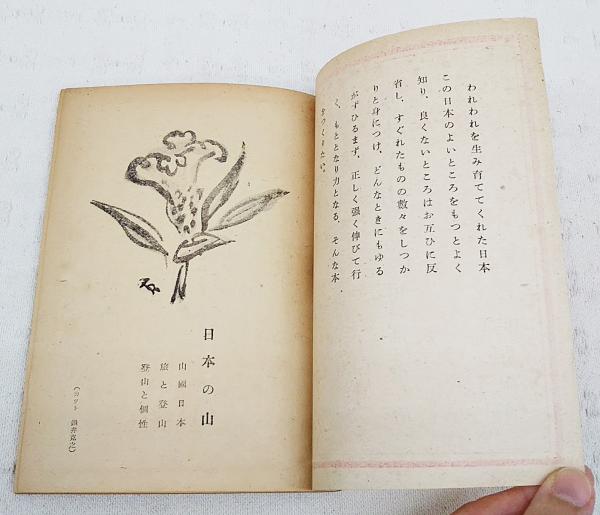 われわれを生み育ててくれた日本
この日本のよいところをもつとよく
知り、良くないところはお互ひに反
省し、すぐれたものの数々をしつか
りと身につけ、どんなときにもゆる
がずひるまず、正しく強く伸びて行
く、もととなり力となる、そんな本、
をつくりたい。
日本の山
山國日本
旅と登山
登山と個性
(カツト 鍋井克之)